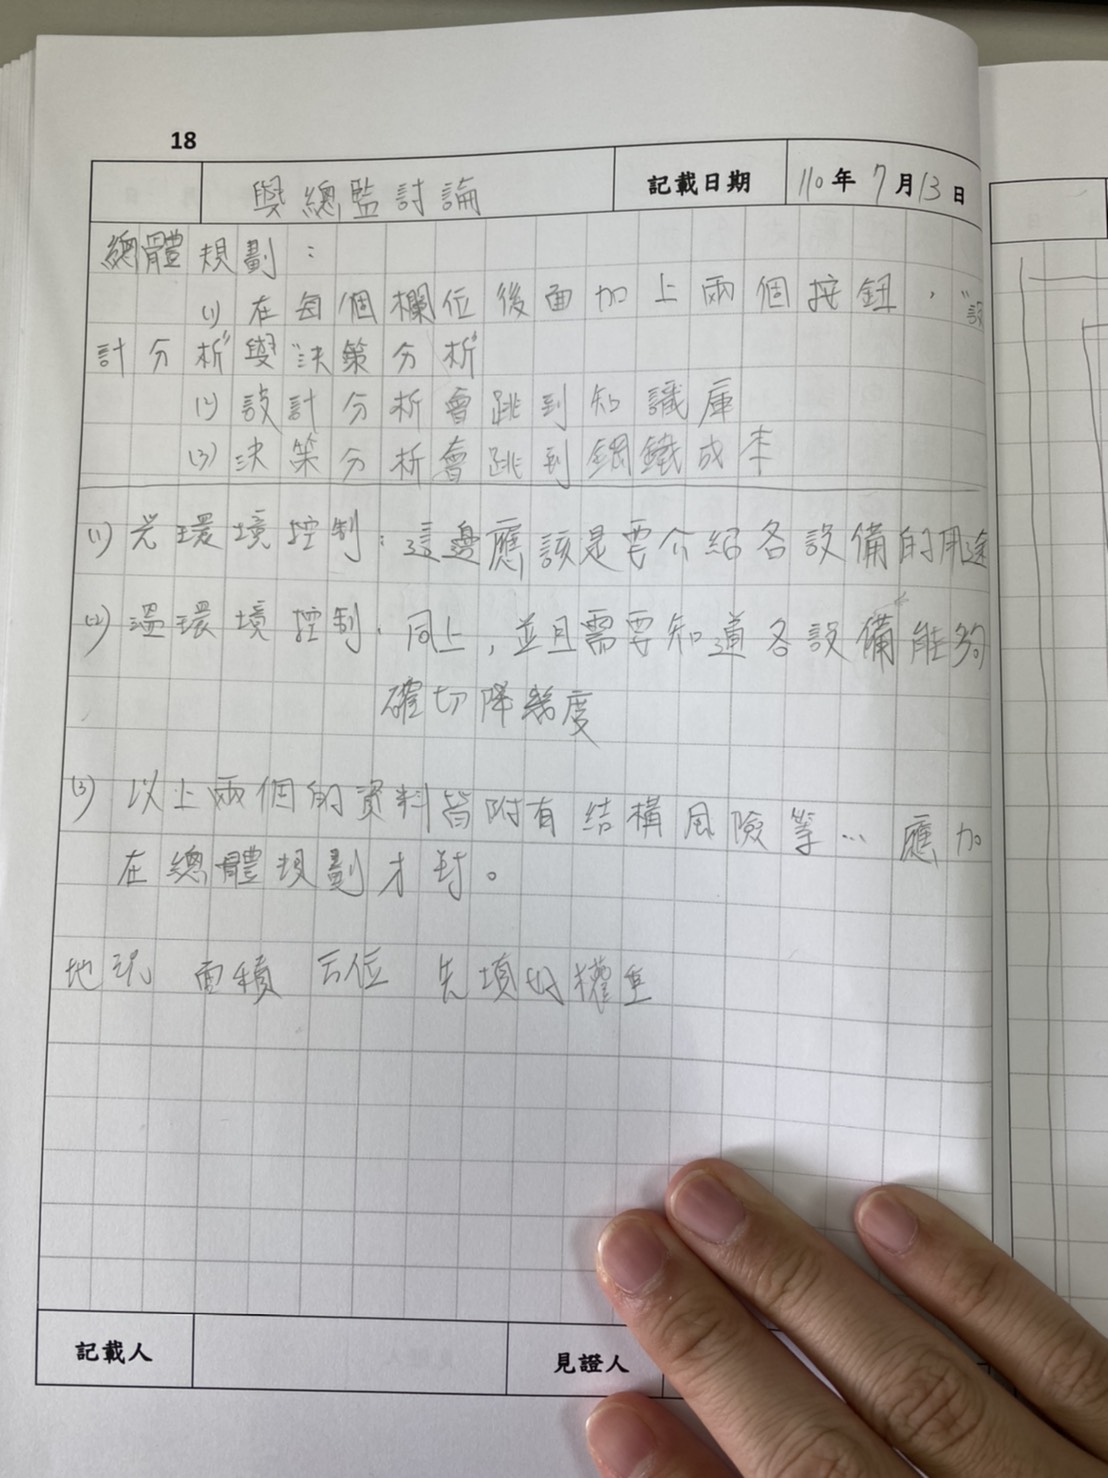 18
與總監討論 記載日期 110年7月13日
總體規劃：
(1) 在每個欄位後面加上兩個按鈕，"設
計分析"與"決策分析"
(2) 設計分析會跳到知識庫
(3) 決策分析會跳到鋼鐵成本
(1) 光環境控制：這邊應該是要介紹各設備的用途
(2) 溫環境控制：同上，並且需要知道各設備能夠
確切降幾度
(3) 以上兩個的資料皆附有結構風險等… 應加
在總體規劃才對。
地 面積 方位 權重
記載人 見證人